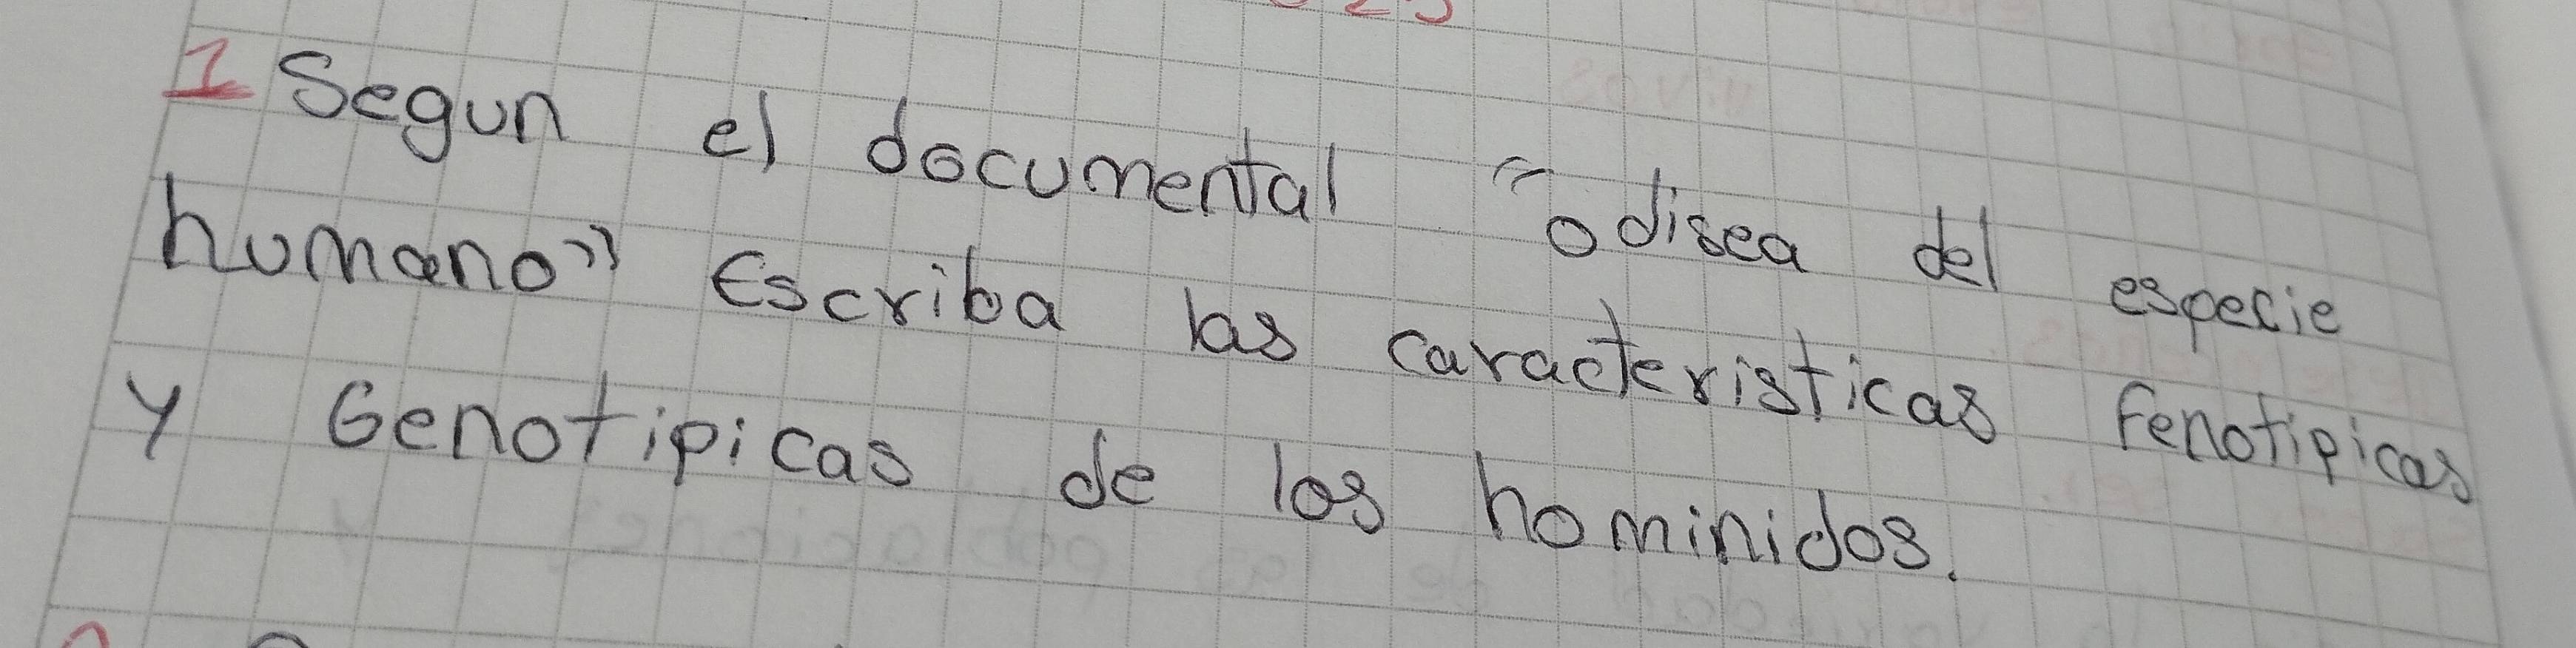 1 Segun el documental "odisea del especie
humano" Escriba las caracteristicas Fenotipicas
y Genotipicas de los hominidos.